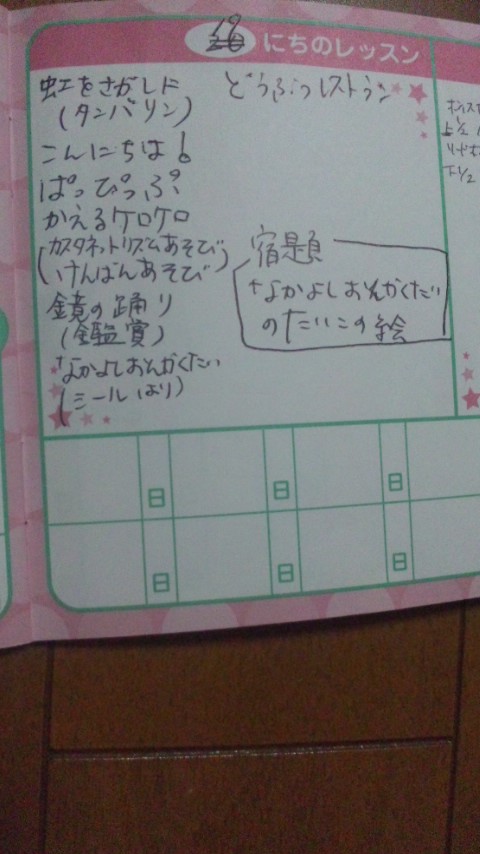 19 にちのレッスン
虹をさがしに
(タンバリン)
こんにちは!
ぱっぴっぷ
かえるケロケロ
(カスタネットリズムあそび
けんばんあそび)
鏡の踊り
(鑑賞)
なかよしおんがくたい
(シールはり)
どうぶつレストラン
宿題
なかよしおんがくたい
のたいこの絵
日
日
日
日
日
日